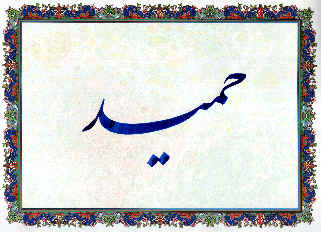 حمید